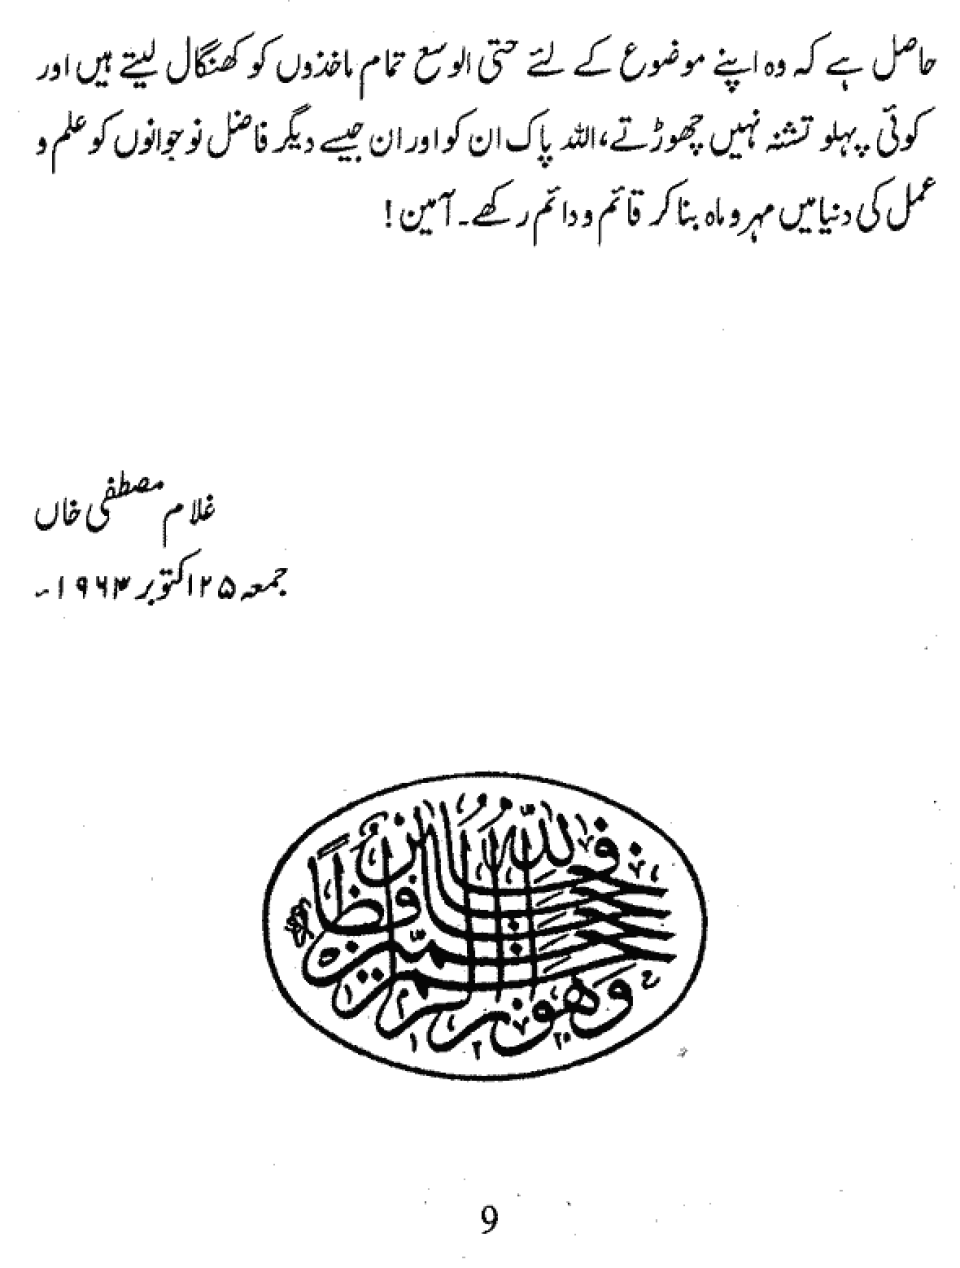 حاصل ہے کہ وہ اپنے موضوع کے لئے حتی الوسع تمام ماخذوں کو کھنگال لیتے ہیں اور
کوئی پہلو تشنہ نہیں چھوڑتے، اللہ پاک ان کو اور ان جیسے دیگر فاضل نوجوانوں کو علم و
عمل کی دنیا میں مہر و ماہ بنا کر قائم و دائم رکھے۔ آمین!
غلام مصطفی خاں
جمعہ ۲۵ اکتوبر ۱۹۶۳۔
فالله خير حافظا
وهو ارحم الراحمين
9